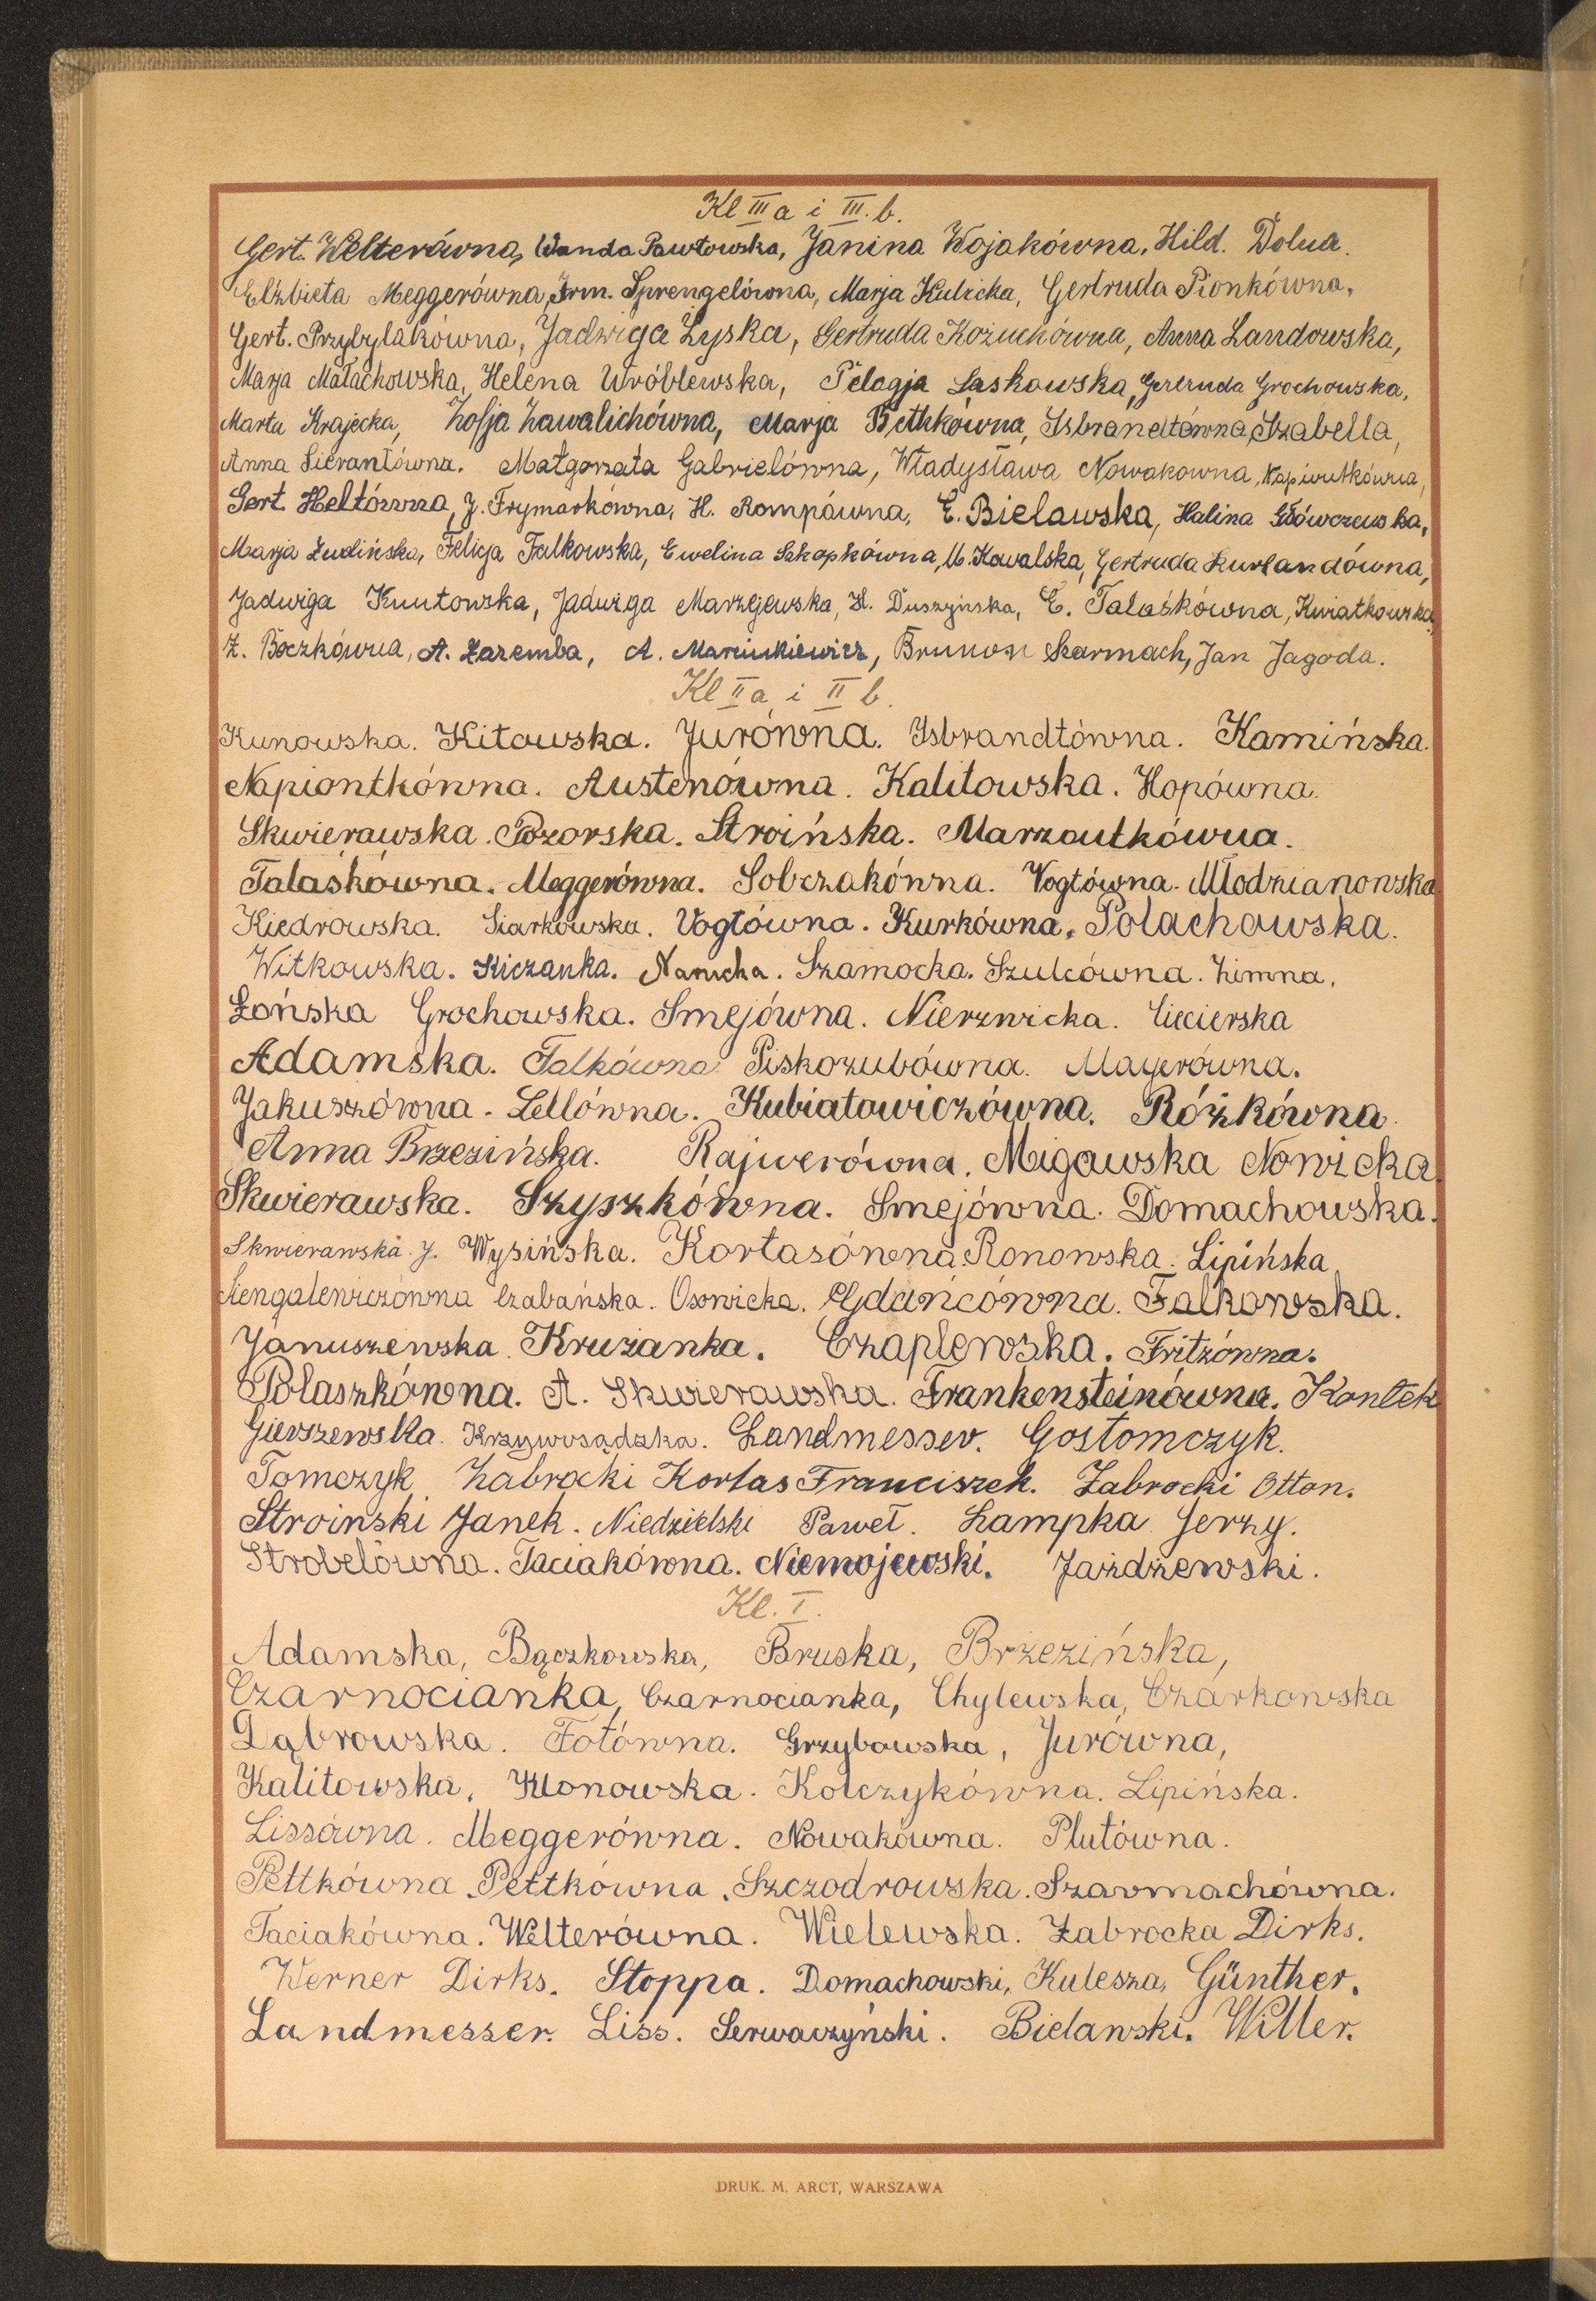 Kl III a i III. b.
Gert. Welterówna, Wanda Pawłowska, Janina Wojakówna, Hild. Dolna.
Elżbieta Meggerówna, Irm. Sprengelówna, Marja Kulicka, Gertruda Pionkówna,
Gert. Przybylakówna, Jadwiga Łyska, Gertruda Kożuchówna, Anna Landowska,
Marja Małachowska, Helena Wróblewska, Pelagja Laskowska, Gertruda Grochowska,
Marta Krajecka, Zofja Zawalichówna, Marja Bethkówna, Isbrandtówna Izabella,
Anna Sierantówna. Małgorzata Gabrielówna, Władysława Nowakowna,
Gert. Heltówna, J. Frymarkówna, H. Rompówna, E. Bielawska, Halina Główczewska,
Marja Żudińska, Felicja Falkowska, Ewelina Szkopkówna, M. Kowalska, Gertruda Kurlandówna,
Jadwiga Knutowska, Jadwiga Marzejewska, H. Duszyńska, E. Talaśkówna, Kwiatkowska,
Z. Boczkówna, A. Zaremba, A. Marcinkiewicz, Brunon Skarmach, Jan Jagoda.
Kl II a i II b.
Kunowska. Kitowska. Jurówna. Isbrandtówna. Kamińska.
Napiontkówna. Austenówna. Kalitowska. Hopówna.
Skwierawska. Pozorska. Stroińska. Marzoutkówna.
Talaśkówna. Meggerówna. Sobczakówna. Vogtówna. Młodzianowska
Kiedrowska. Siarkowska. Vogtówna. Kurkówna. Polachowska.
Witkowska. Kiczanka. Narucha. Szamocka. Szulcówna. Zimna.
Łońska Grochowska. Smejówna. Nierzwicka. Ciecierska
Adamska. Falkówna Piskozubówna. Mayerówna.
Jakuszówna. Lellówna. Kubiatowiczówna. Różkówna.
Anna Brzezińska. Rajwerówna. Migawska Nowicka.
Skwierawska. Szyszkówna. Smejówna. Domachowska.
Skwierawska J. Wysińska. Kortasówna. Ronowska. Lipińska
Czabańska. Osowicka. Gdańcówna. Falkowska.
Januszewska. Kruzanka. Czaplewska. Fritzówna.
Polaszkówna. A. Skwierawska. Frankensteinówna. Kontek
Gierszewska. Krzywosądzka. Landmesser. Gostomczyk.
Tomczyk Zabrocki Kortas Franciszek. Zabrocki Otton.
Stroinski Janek. Niedzielski Paweł. Lampka Jerzy.
Strobelówna. Taciakówna. Niemojewski. Jażdżewski.
Kl. I.
Adamska, Bączkowska, Bruska, Brzezińska,
Czarnocianka, Czarnocianka, Chylewska, Czarkowska
Dąbrowska. Fotówna. Grzybowska, Jurówna,
Kalitowska, Klonowska. Kolczykówna. Lipińska.
Lissówna. Meggerówna. Nowakówna. Plutówna.
Pettkówna. Pettkówna. Szczodrowska. Szarmachówna.
Taciakówna. Welterówna. Wielewska. Zabrocka Dirks.
Werner Dirks. Stoppa. Domachowski, Kulesza, Günther.
Landmesser. Liss. Serwaczyński. Bielawski. Willer.
DRUK. M. ARCT, WARSZAWA